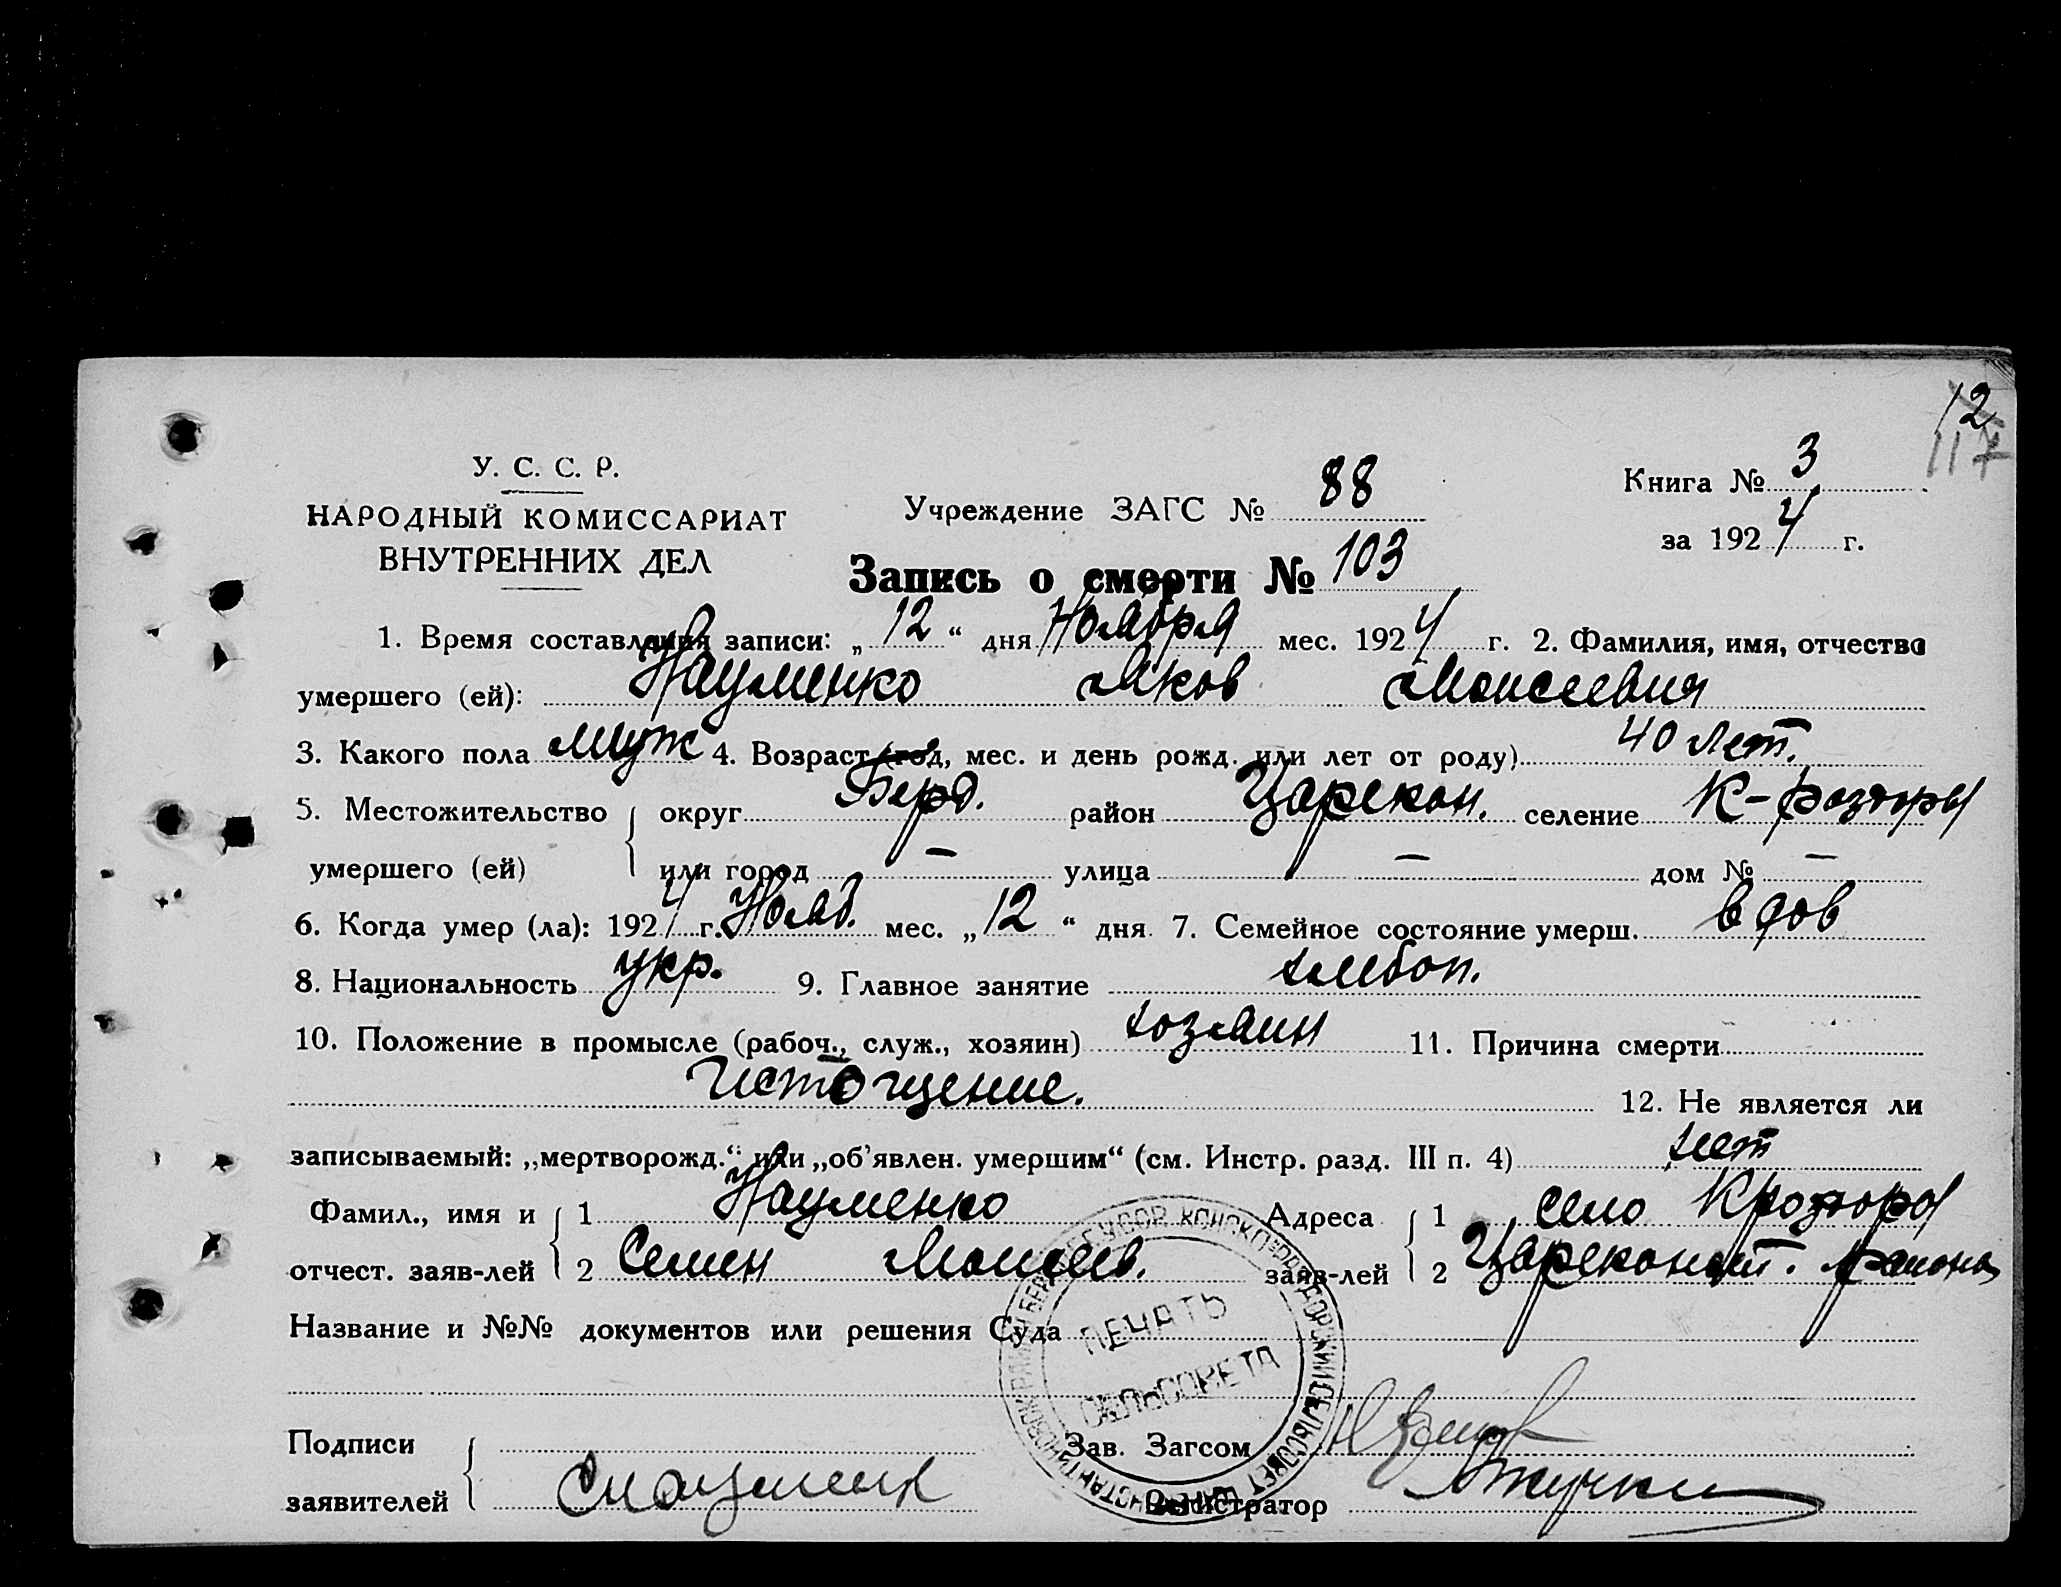 12
117
У. С. С. Р.
НАРОДНЫЙ КОМИССАРИАТ
ВНУТРЕННИХ ДЕЛ
Учреждение ЗАГС № 88
Книга № 3
за 1924 г.
Запись о смерти № 103
1. Время составления записи: „12“ дня Ноября мес. 1924 г. 2. Фамилия, имя, отчество
умершего (ей): Науменко Яков Моисеевич
3. Какого пола муж 4. Возраст (год, мес. и день рожд. или лет от роду) 40 лет.
5. Местожительство округ Берд. район Царекон. селение К-роздоры
умершего (ей) или город — улица — дом № —
6. Когда умер (ла): 1924 г. Нояб. мес. „12“ дня 7. Семейное состояние умерш. вдов
8. Национальность укр. 9. Главное занятие хлебоп.
10. Положение в промысле (рабоч., служ., хозяин) хозяин 11. Причина смерти
Истощение.
12. Не является ли
записываемый: „мертворожд.“ или „об’явлен. умершим“ (см. Инстр. разд. III п. 4) нет
Фамил., имя и 1 Науменко Адреса 1 село Кроздоры
отчест. заяв-лей 2 Семен Моисеев. заяв-лей 2 Цареконст. района
Название и №№ документов или решения Суда
ПЕЧАТЬ
СЕЛЬСОВЕТА
Подписи Зав. Загсом
заявителей Регистратор